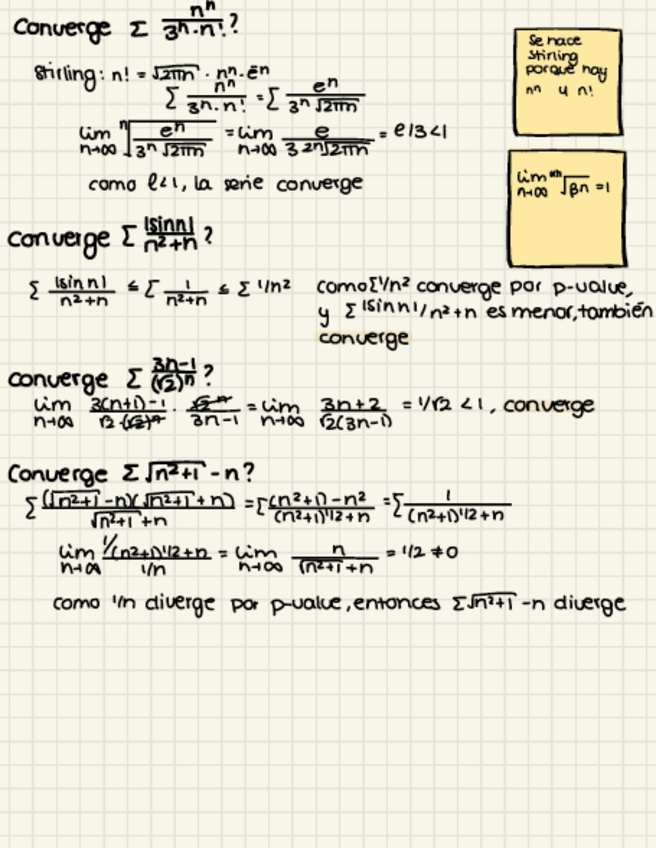 Converge Σ nⁿ/3ⁿ·n! ?
Stirling: n! = √2πn · nⁿ·e⁻ⁿ
Σ nⁿ/3ⁿ·n! = Σ eⁿ/3ⁿ√2πn
lim n→∞ ⁿ√(eⁿ/3ⁿ√2πn) = lim n→∞ e/3 ²ⁿ√2πn = e/3 <1
como l<1, la serie converge
Se hace
Stirling
porque hay
nⁿ y n!
lim n→∞ √βn = 1
Converge Σ |sinn|/n²+n ?
Σ |sinn|/n²+n ≤ Σ 1/n²+n ≤ Σ 1/n² como Σ1/n² converge por p-value,
y Σ |sinn|/n²+n es menor, también
converge
Converge Σ 3n-1/(√2)ⁿ ?
lim n→∞ 3(n+1)-1/√2·(√2)ⁿ · √2ⁿ/3n-1 = lim n→∞ 3n+2/√2(3n-1) = 1/√2 <1, converge
Converge Σ √n²+1 - n?
Σ (√n²+1 -n)(√n²+1 +n)/√n²+1 +n = Σ (n²+1)-n²/(n²+1)^1/2+n = Σ 1/(n²+1)^1/2+n
lim n→∞ 1/(n²+1)^1/2+n / 1/n = lim n→∞ n/√n²+1 +n = 1/2 ≠0
como 1/n diverge por p-value, entonces Σ√n²+1 -n diverge